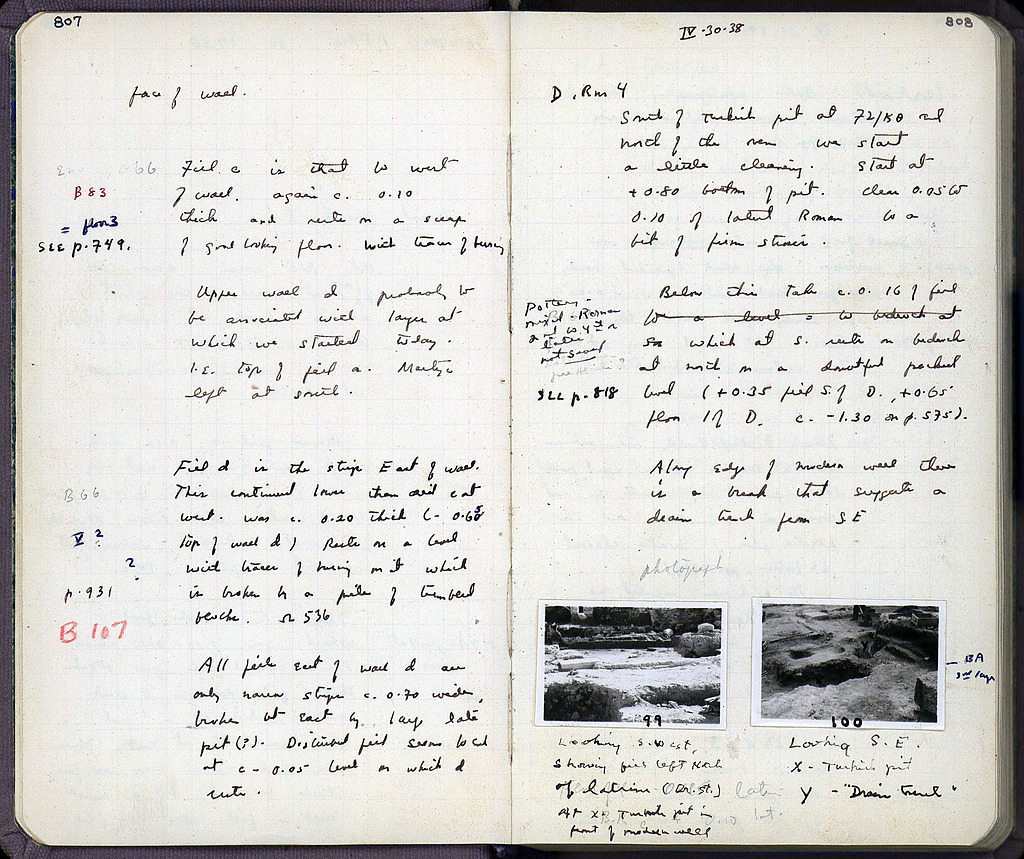 807
face of wall.
B 66
Fill c is that to west
B 83
of wall. again c. 0.10
= floor 3
thick and rests on a scrap
SEE p. 749.
of good looking floor. with traces of burning
Upper wall d probably to
be associated with layer at
which we started today.
I.E. top of fill a.
left at south.
Fill d is the strip East of wall.
B 66
This continued lower than did c at
west. was c. 0.20 thick
V ?
top of wall d) Rests on a level
?
with traces of burning on it which
p. 931
is broken by a pile of tumbled
536
B 107
All fills East of wall d are
only narrow strips c. 0.70 wide,
broken at East by large late
pit (?). Disturbed fill seems to end
at c - 0.05 level on which d
rests.
808
IV-30-38
D. Rm 4
South of Turkish pit at 72/ and
north of the we start
a little cleaning. Start at
+0.80 bottom of pit. clear 0.05 to
0.10 of latest Roman to a
bit of firm stroses.
Below this take c. 0.16 of fill
to a level = to bedrock at
which at S. rests on bedrock
at north on a doubtful packed
level (+0.35 fill S. of D., +0.65
floor 1 of D. c. -1.30 on p. 575).
Pottery -
mixed - Roman
2nd to 4th or
later
not saved
SEE p. 818
Along edge of modern wall there
is a break that suggests a
drain trench from SE
photograph
99
100
BA
Looking S. West,
showing fill left North
of latrine
At X = Turkish pit in
front of modern wall
Looking S. E.
X - Turkish pit
Y - "Drain trench"